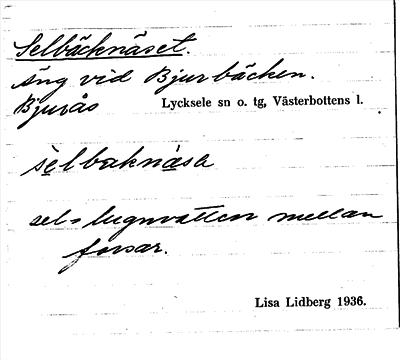 Selbäcknäset.
äng vid Bjurbäcken.
Bjurås Lycksele sn o. tg, Västerbottens l.
sel = lugnvatten mellan
forsar.
Lisa Lidberg 1936.